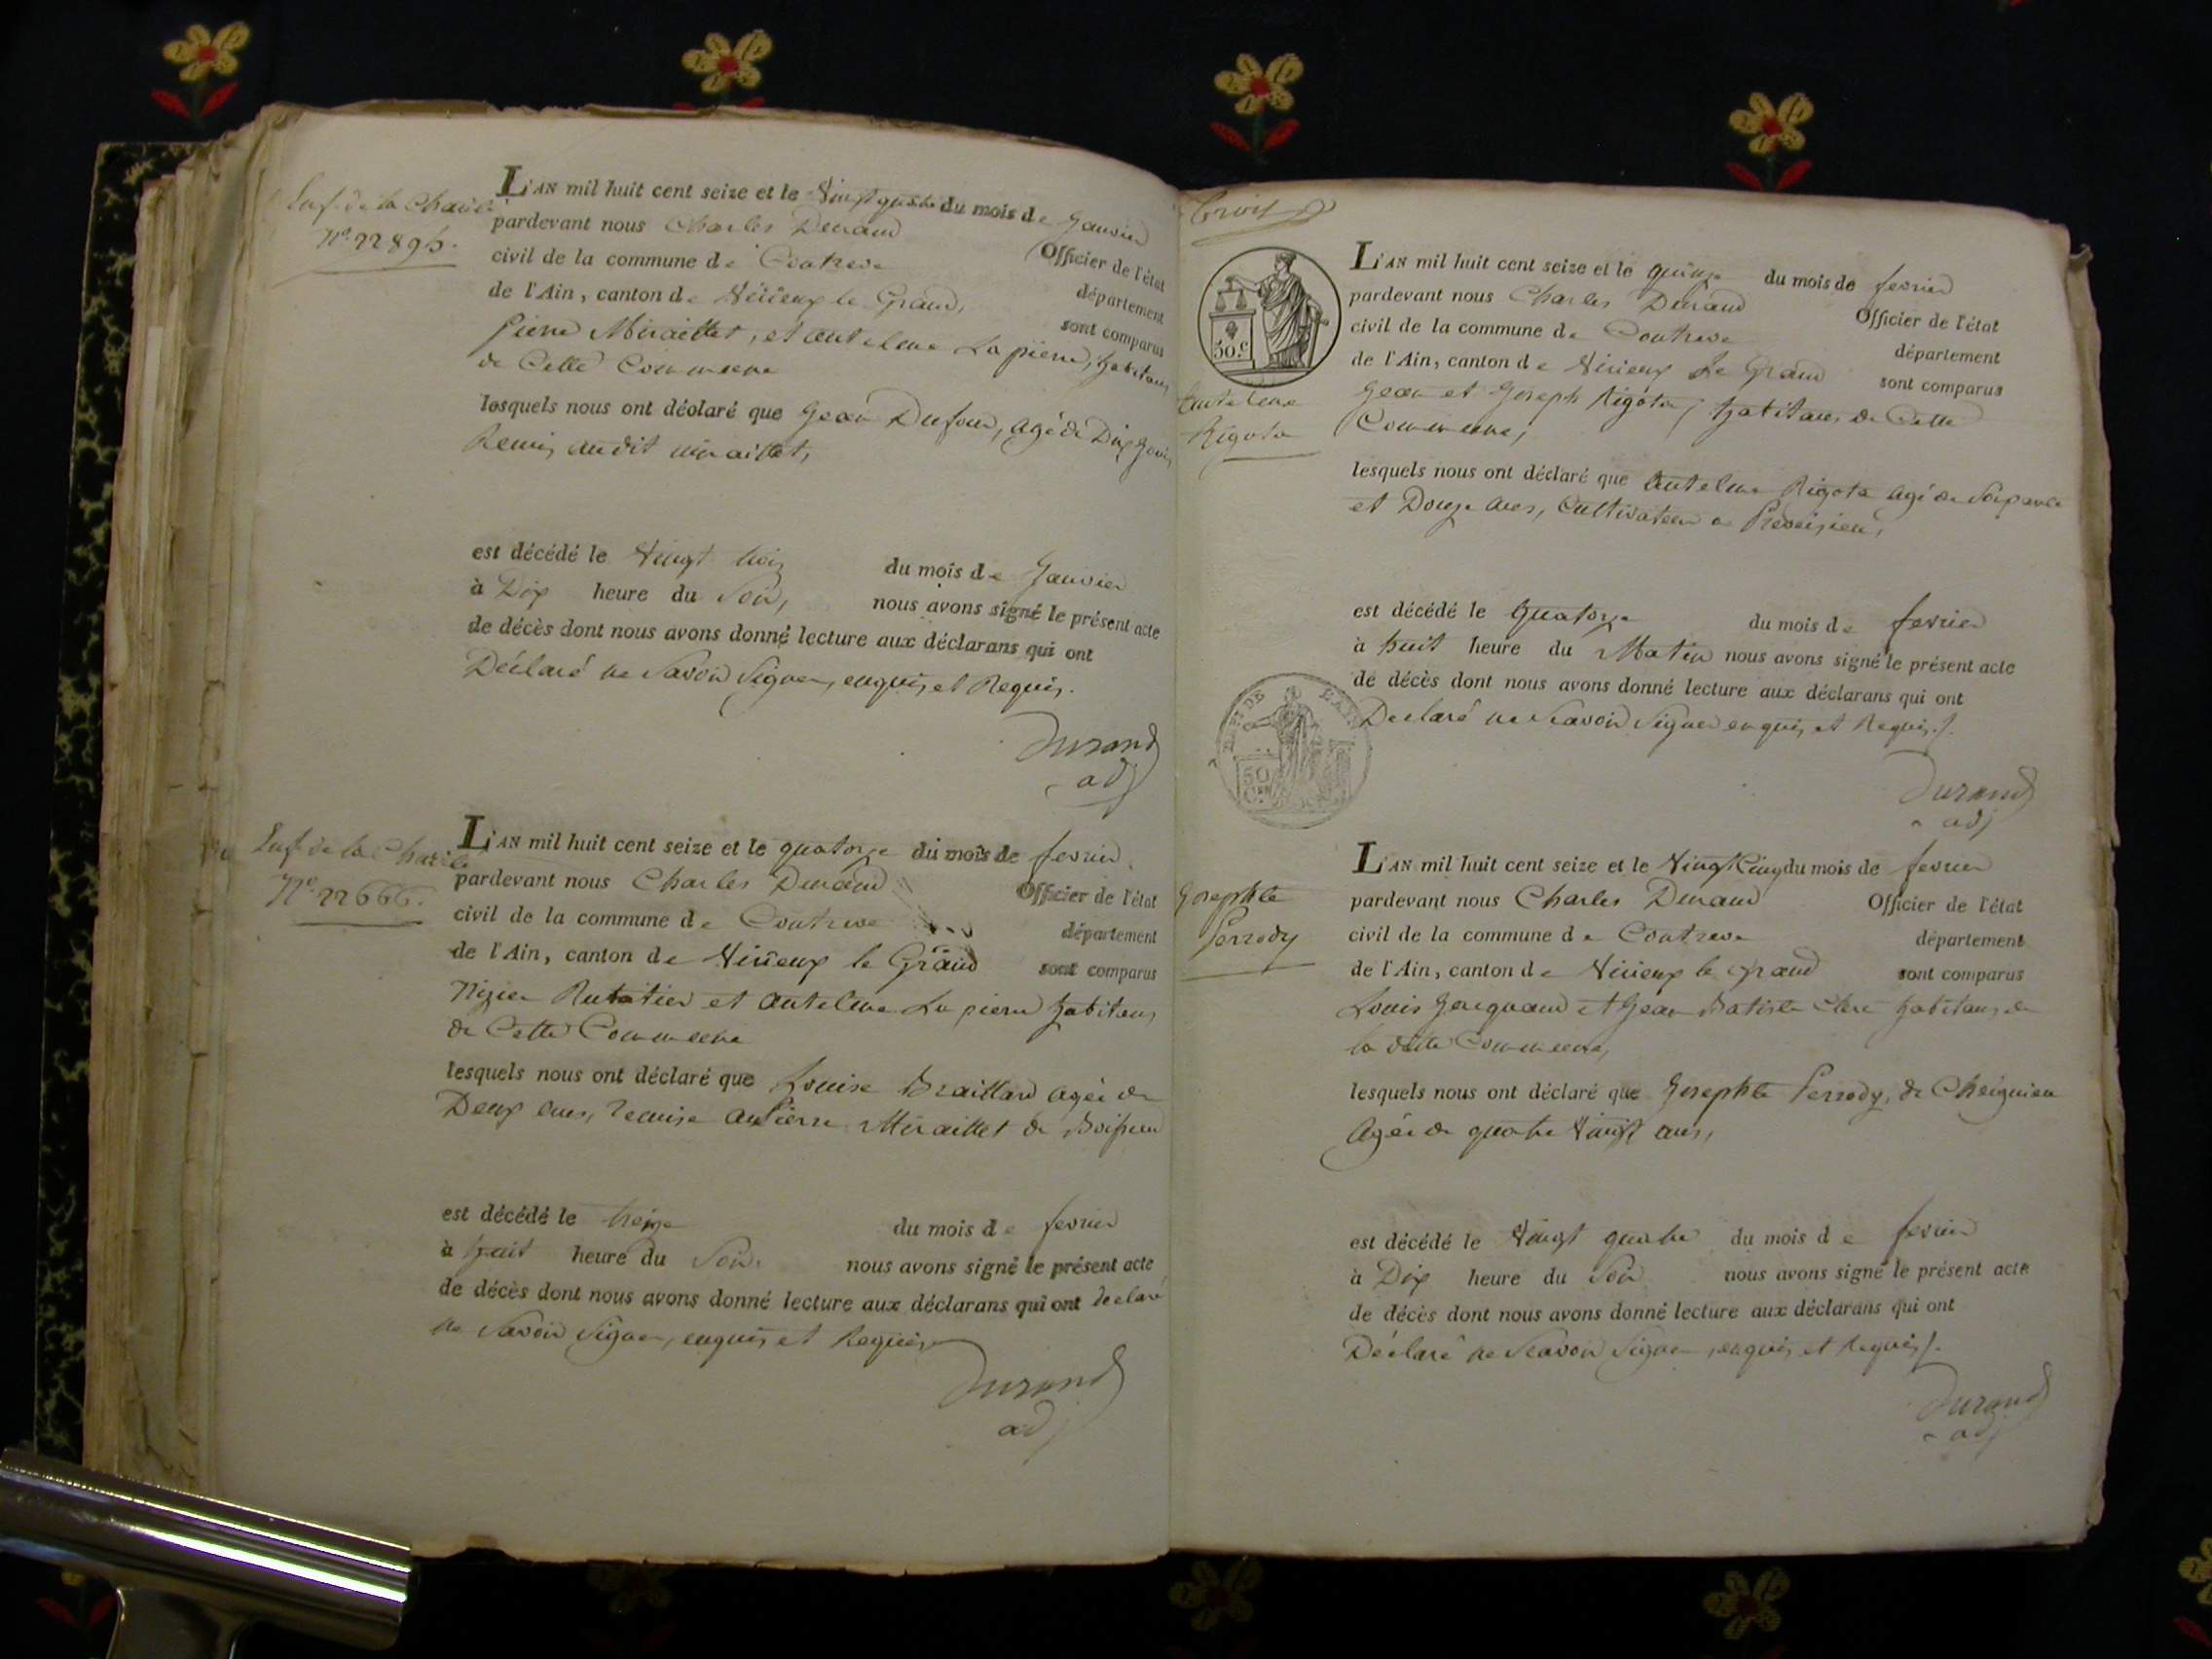 Enf. de la Charité
N.° 22895.
L'AN mil huit cent seize et le Vingt quatre du mois de Janvier
pardevant nous Charles Durand Officier de l'état
civil de la commune de Contrevo département
de l'Ain, canton de Virieux le Grand, sont comparus
Pierre Miraillet, et antelme La pierre, habitans
de Cette Commune
lesquels nous ont déclaré que Jean Dufour, agé de Dix Jours
Remis, audit miraillet,
est décédé le Vingt trois du mois de Janvier
à Dix heure du Soir, nous avons signé le présent acte
de décès dont nous avons donné lecture aux déclarans qui ont
Déclaré ne Savoir Signer, enquis et Requis.
Durand
adj
Enf. de la Charité
N.° 22666.
L'AN mil huit cent seize et le quatorze du mois de fevrier
pardevant nous Charles Durand Officier de l'état
civil de la commune de Contrevo département
de l'Ain, canton de Virieux le Grand sont comparus
Nizier Rutatier et antelme La pierre habitans
de Cette Commune
lesquels nous ont déclaré que Louise Braillard agée de
Deux ans, remise au Pierre Miraillet de
est décédé le treize du mois de fevrier
à huit heure du Soir. nous avons signé le présent acte
de décès dont nous avons donné lecture aux déclarans qui ont declaré
ne Savoir Signer, enquis et Requis
Durand
adj
Trois
50.c
Antelme
Rigota
L'AN mil huit cent seize et le quinze du mois de fevrier
pardevant nous Charles Durand Officier de l'état
civil de la commune de Contrevo département
de l'Ain, canton de Virieux Le Grand sont comparus
Jean et Joseph Rigota, habitans de Cette
Commune,
lesquels nous ont déclaré que Antelme Rigota agé de Soixante
et Douze ans, Cultivateur a Preveisieu,
est décédé le Quatorze du mois de fevrier
à huit heure du Matin nous avons signé le présent acte
de décès dont nous avons donné lecture aux déclarans qui ont
Declaré ne Scavoir Signer enquis et Requis ./.
DEPT DE L'AIN
50
Durand
adj
Josephte
Perrody
L'AN mil huit cent seize et le Vingt Cinq du mois de fevrier
pardevant nous Charles Durand Officier de l'état
civil de la commune de Contrevo département
de l'Ain, canton de Virieux le Grand sont comparus
Louis Jacquand et Jean Batiste Clerc habitans de
la dite Commune,
lesquels nous ont déclaré que Josephte Perrody, de Cheignieu
Agée de quatre Vingt ans,
est décédé le Vingt quatre du mois de fevrier
à Dix heure du Soir nous avons signé le présent acte
de décès dont nous avons donné lecture aux déclarans qui ont
Déclaré ne Scavoir Signer, enquis et Requis /.
Durand
adj